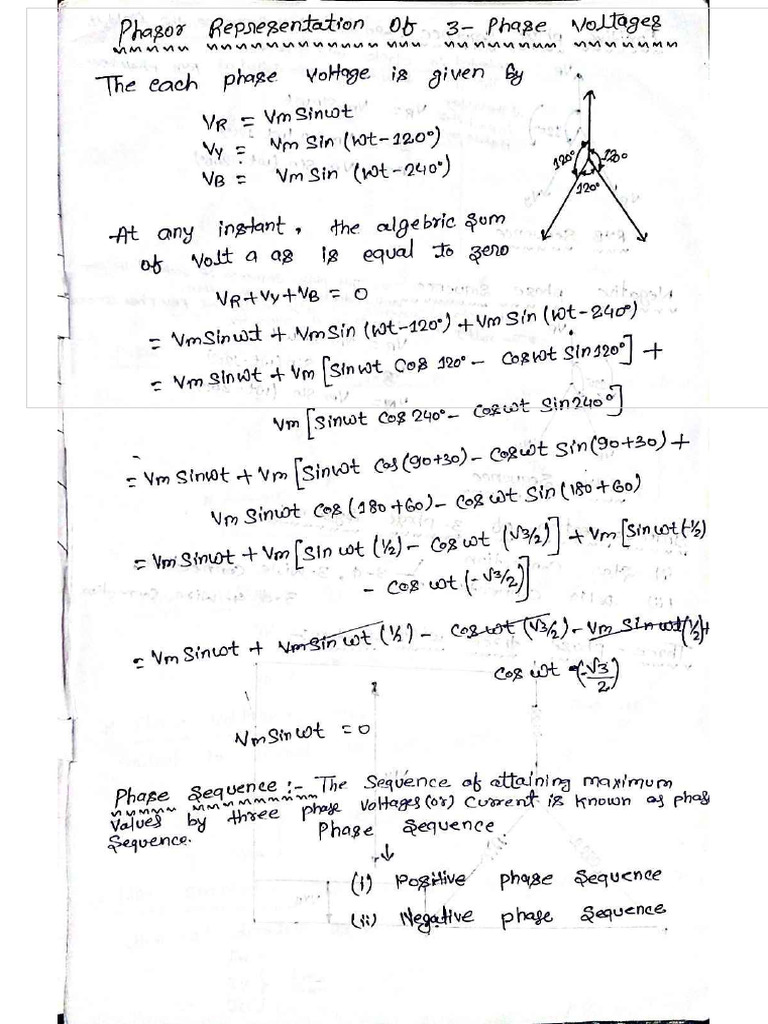 Phasor Representation Of 3-Phase Voltages
The each phase voltage is given by
VR = Vm Sinwt
VY = Vm Sin (wt-120°)
VB = Vm Sin (wt-240°)
120° 120
120°
At any instant, the algebric sum
of volt a as is equal to zero
VR+VY+VB = 0
= Vm Sinwt + Vm Sin (wt-120°) + Vm Sin (wt-240°)
= Vm Sinwt + Vm [Sinwt Cos 120° - Coswt Sin120°] +
Vm [Sinwt Cos 240° - Coswt Sin240°]
= Vm Sinwt + Vm [Sinwt Cos(90+30) - Coswt Sin(90+30) +
Vm Sinwt Cos(180+60) - Cos wt Sin(180+60)
= Vm Sinwt + Vm [Sin wt (½) - Cos wt (√3/2)] + Vm [Sin wt (-½)
- Cos wt (-√3/2)]
= Vm Sinwt + Vm Sin wt (½) - Cos wt (√3/2) - Vm Sin wt (½) +
Cos wt (-√3/2)
Vm Sin wt = 0
Phase Sequence :- The Sequence of attaining maximum
Values by three phase voltages (or) Current is known as phas
Sequence.
Phase Sequence
↓
(i) Positive phase Sequence
(ii) Negative phase Sequence